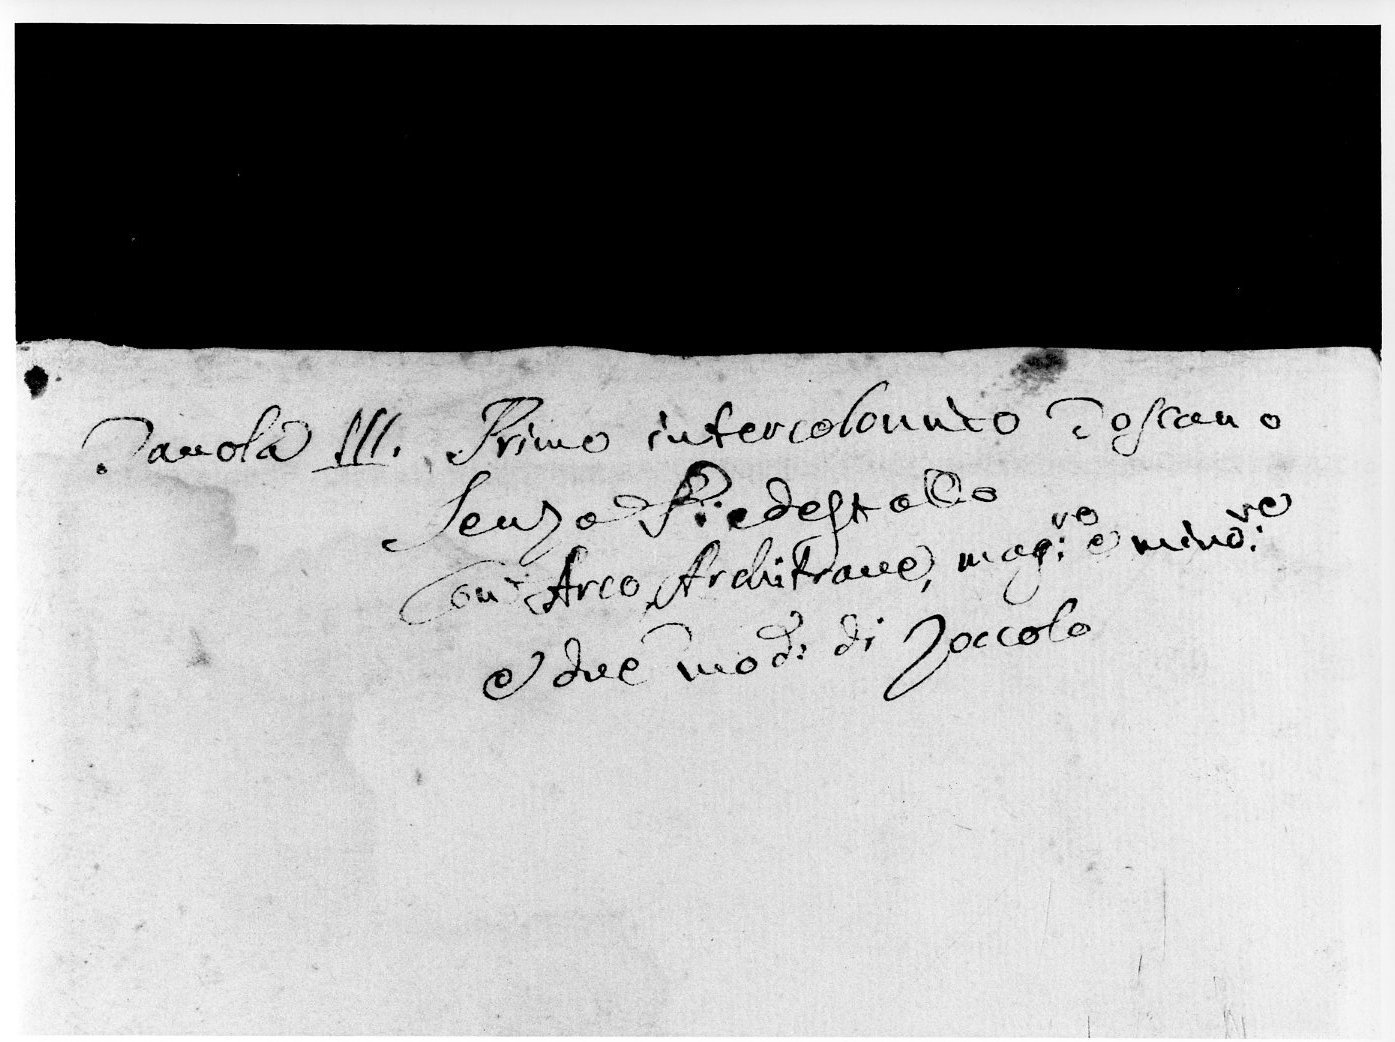 Tauola III. Primo intercolunnio Toscano
Senza Piedestallo
Con Arco, Architraue, mag:re e mino:re
e due modi di Zoccolo